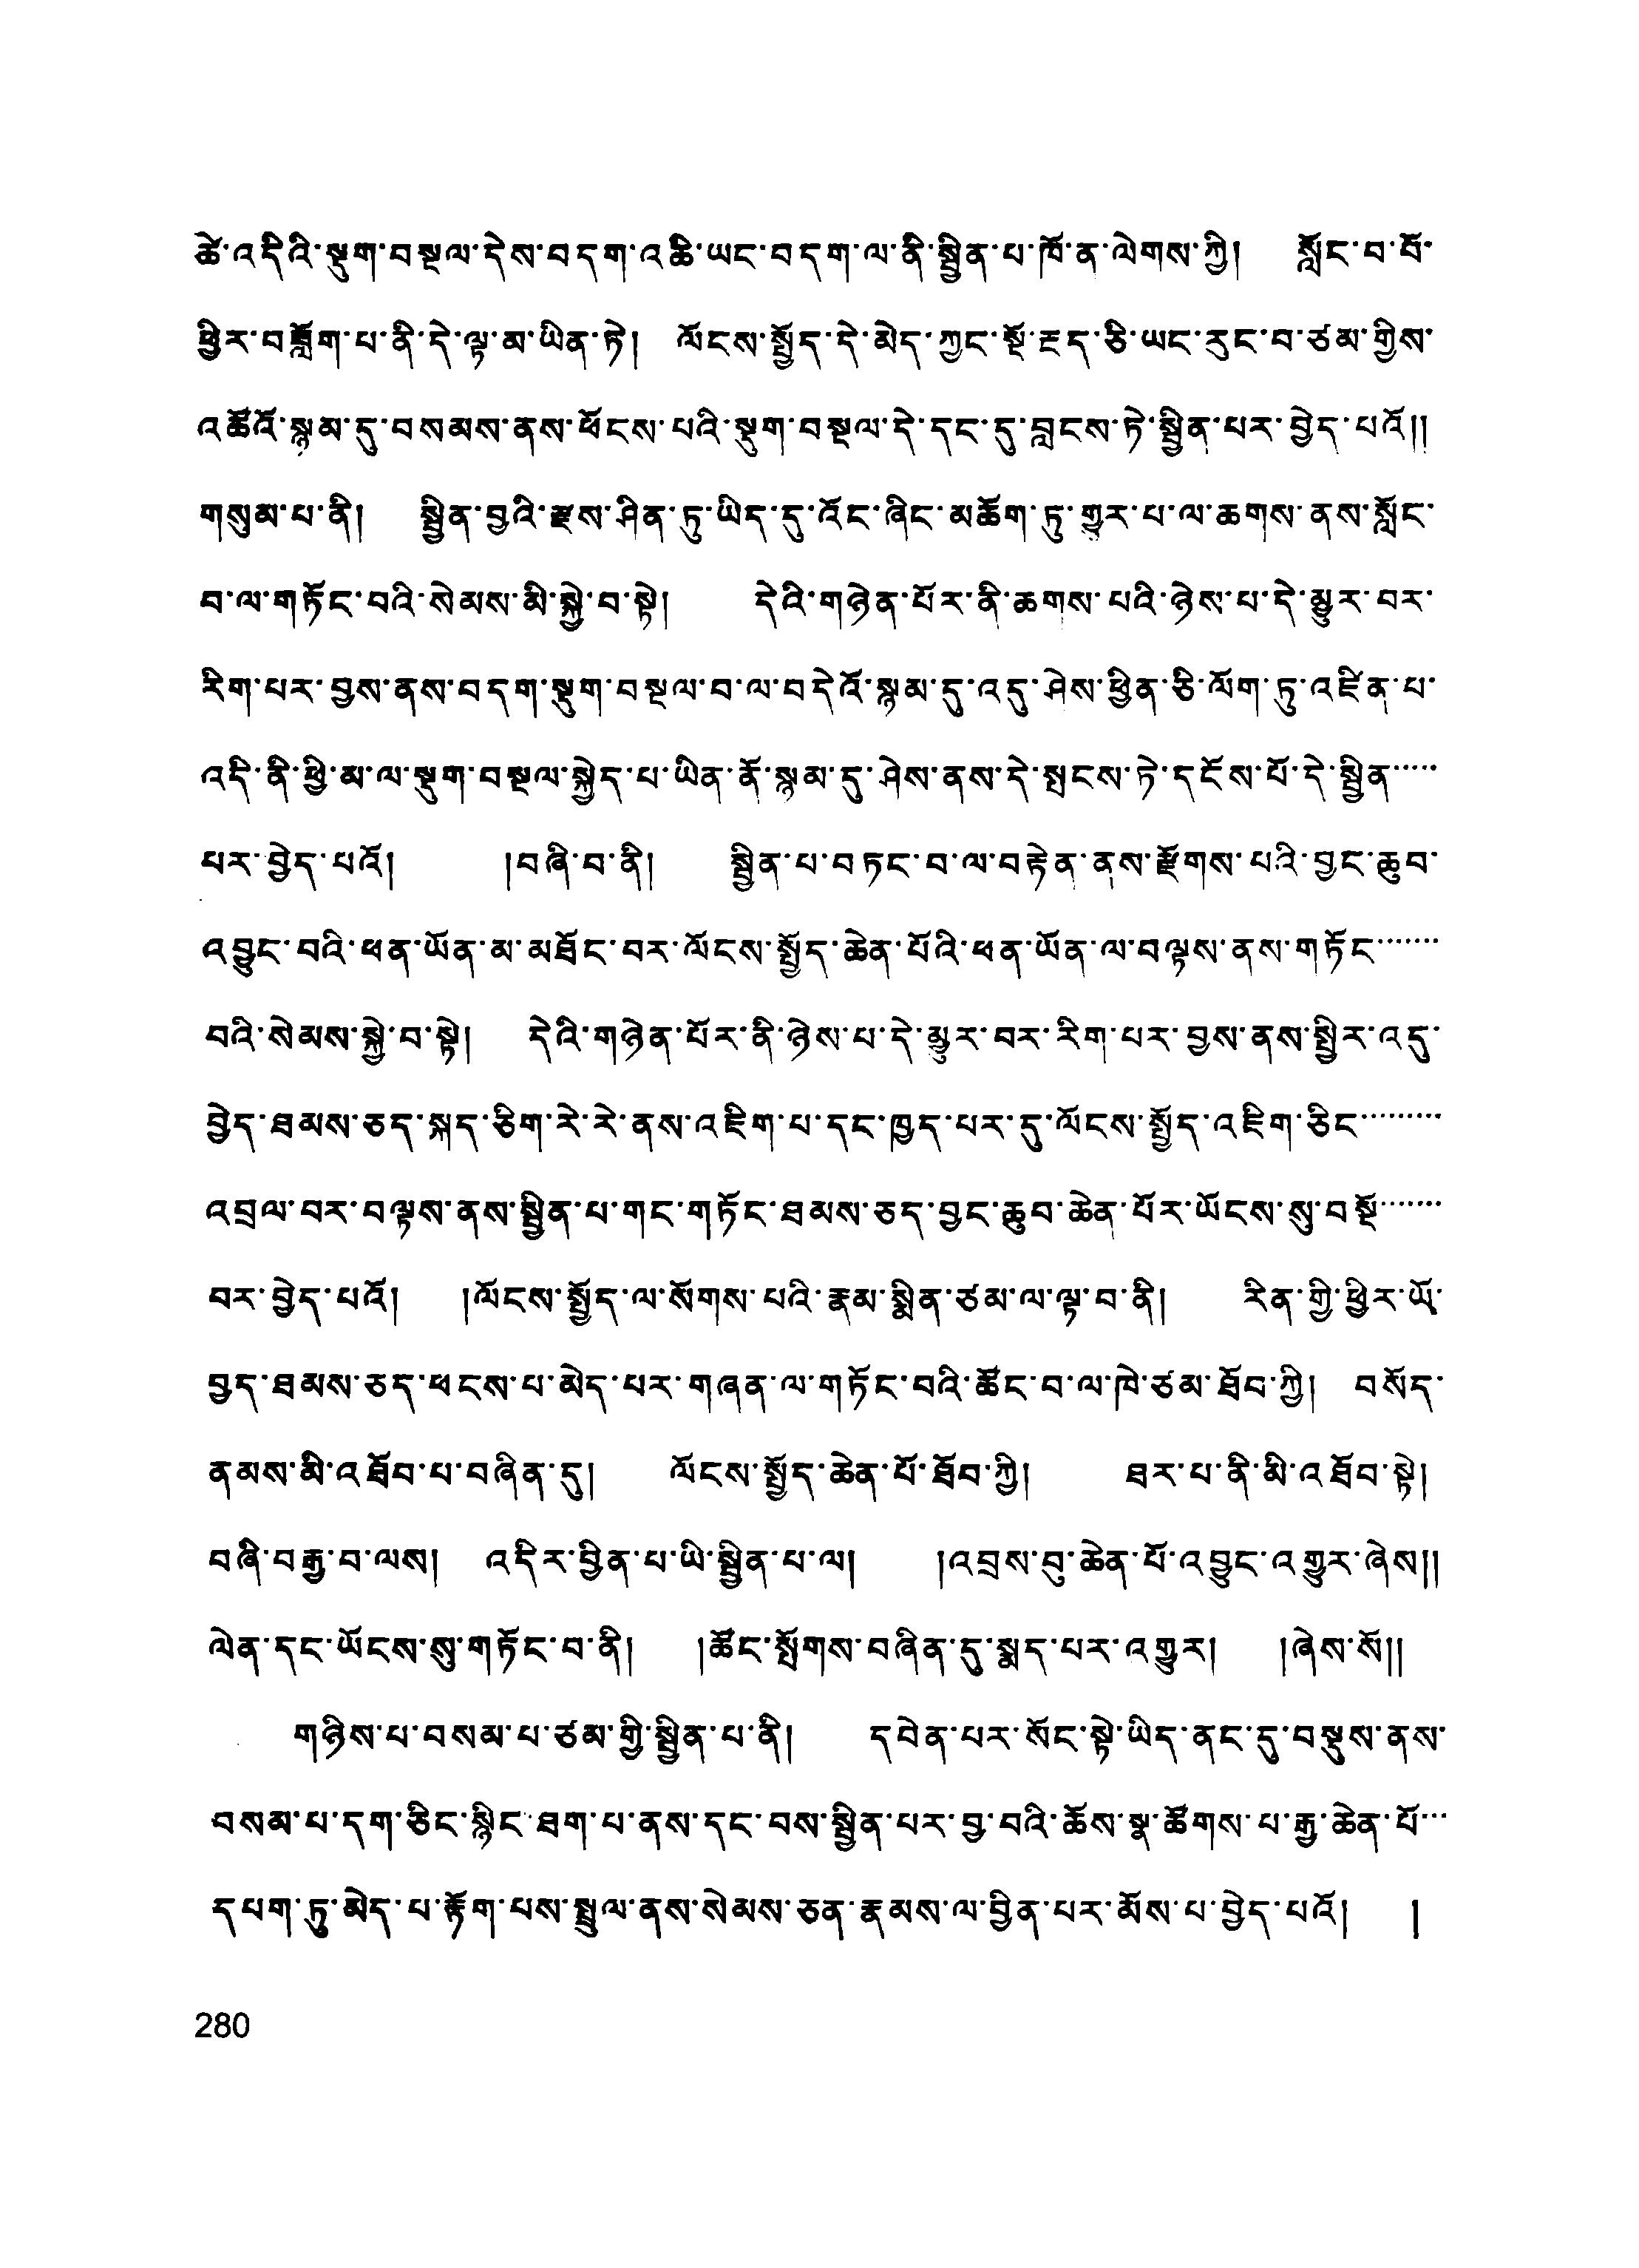 ཚེ་འདིའི་སྡུག་བསྔལ་དེས་བདག་འཆི་ཡང་བདག་ལ་ནི་སྦྱིན་པ་ཁོ་ན་ལེགས་ཀྱི། སློང་བ་བོ་
ཕྱིར་བཟློག་པ་ནི་དེ་ལྟ་མ་ཡིན་ཏེ། ལོངས་སྤྱོད་དེ་མེད་ཀྱང་སྔོ་རྔད་ཅི་ཡང་རུང་བ་ཙམ་གྱིས་
འཚོའོ་སྙམ་དུ་བསམས་ནས་ཕོངས་པའི་སྡུག་བསྔལ་དེ་དང་དུ་བླངས་ཏེ་སྦྱིན་པར་བྱེད་པའོ།།
གསུམ་པ་ནི། སྦྱིན་བྱའི་རྫས་ཤིན་ཏུ་ཡིད་དུ་འོང་ཞིང་མཆོག་ཏུ་གྱུར་པ་ལ་ཆགས་ནས་སློང་
བ་ལ་གཏོང་བའི་སེམས་མི་སྐྱེ་བ་སྟེ། དེའི་གཉེན་པོར་ནི་ཆགས་པའི་ཉེས་པ་དེ་མྱུར་བར་
རིག་པར་བྱས་ནས་བདག་སྡུག་བསྔལ་བ་ལ་བདེའོ་སྙམ་དུ་འདུ་ཤེས་ཕྱིན་ཅི་ལོག་ཏུ་འཛིན་པ་
འདི་ནི་ཕྱི་མ་ལ་སྡུག་བསྔལ་སྐྱེད་པ་ཡིན་ནོ་སྙམ་དུ་ཤེས་ནས་དེ་སྤངས་ཏེ་དངོས་པོ་དེ་སྦྱིན་····
པར་བྱེད་པའོ། །བཞི་བ་ནི། སྦྱིན་པ་བཏང་བ་ལ་བརྟེན་ནས་རྫོགས་པའི་བྱང་ཆུབ་
འབྱུང་བའི་ཕན་ཡོན་མ་མཐོང་བར་ལོངས་སྤྱོད་ཆེན་པོའི་ཕན་ཡོན་ལ་བལྟས་ནས་གཏོང་······
བའི་སེམས་སྐྱེ་བ་སྟེ། དེའི་གཉེན་པོར་ནི་ཉེས་པ་དེ་མྱུར་བར་རིག་པར་བྱས་ནས་སྤྱིར་འདུ་
བྱེད་ཐམས་ཅད་སྐད་ཅིག་རེ་རེ་ནས་འཇིག་པ་དང་ཁྱད་པར་དུ་ལོངས་སྤྱོད་འཇིག་ཅིང་········
འབྲལ་བར་བལྟས་ནས་སྦྱིན་པ་གང་གཏོང་ཐམས་ཅད་བྱང་ཆུབ་ཆེན་པོར་ཡོངས་སུ་བསྔོ་······
བར་བྱེད་པའོ། །ལོངས་སྤྱོད་ལ་སོགས་པའི་རྣམ་སྨིན་ཙམ་ལ་ལྟ་བ་ནི། རིན་གྱི་ཕྱིར་ཡོ་
བྱད་ཐམས་ཅད་ཕངས་པ་མེད་པར་གཞན་ལ་གཏོང་བའི་ཚོང་བ་ལ་ཁེ་ཙམ་ཐོབ་ཀྱི། བསོད་
ནམས་མི་འཐོབ་པ་བཞིན་དུ། ལོངས་སྤྱོད་ཆེན་པོ་ཐོབ་ཀྱི། ཐར་པ་ནི་མི་འཐོབ་སྟེ།
བཞི་བརྒྱ་བ་ལས། འདིར་བྱིན་པ་ཡི་སྦྱིན་པ་ལ། །འབྲས་བུ་ཆེན་པོ་འབྱུང་འགྱུར་ཞེས།།
ལེན་དང་ཡོངས་སུ་གཏོང་བ་ནི། །ཚོང་སྤོགས་བཞིན་དུ་སྨད་པར་འགྱུར། །ཞེས་སོ།།
གཉིས་པ་བསམ་པ་ཙམ་གྱི་སྦྱིན་པ་ནི། དབེན་པར་སོང་སྟེ་ཡིད་ནང་དུ་བསྡུས་ནས་
བསམ་པ་དག་ཅིང་སྙིང་ཐག་པ་ནས་དང་བས་སྦྱིན་པར་བྱ་བའི་ཆོས་སྣ་ཚོགས་པ་རྒྱ་ཆེན་པོ་··
དཔག་ཏུ་མེད་པ་རྟོག་པས་སྤྲུལ་ནས་སེམས་ཅན་རྣམས་ལ་བྱིན་པར་མོས་པ་བྱེད་པའོ། །
280